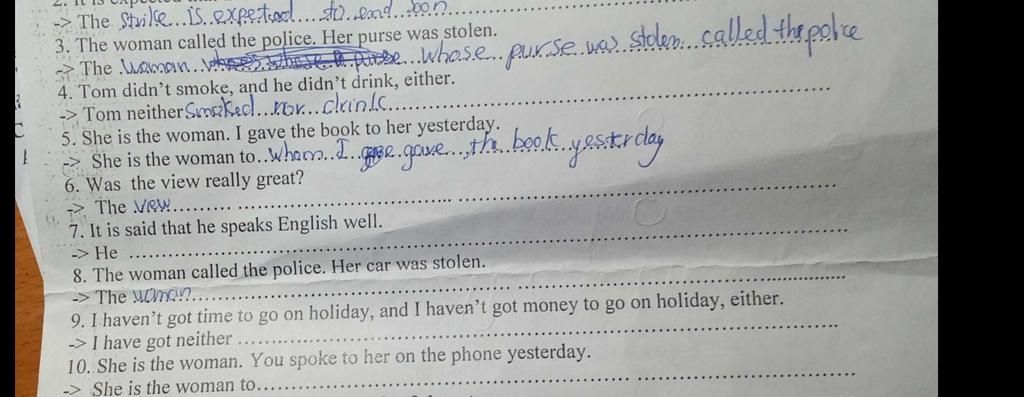 -> The Strike is expected to end son
3. The woman called the police. Her purse was stolen.
-> The woman whose purse was stolen called the police
4. Tom didn't smoke, and he didn't drink, either.
-> Tom neither Smoked nor drink
5. She is the woman. I gave the book to her yesterday.
-> She is the woman to whom I gave the book yesterday
6. Was the view really great?
-> The view
7. It is said that he speaks English well.
-> He
8. The woman called the police. Her car was stolen.
-> The woman
9. I haven't got time to go on holiday, and I haven't got money to go on holiday, either.
-> I have got neither
10. She is the woman. You spoke to her on the phone yesterday.
-> She is the woman to